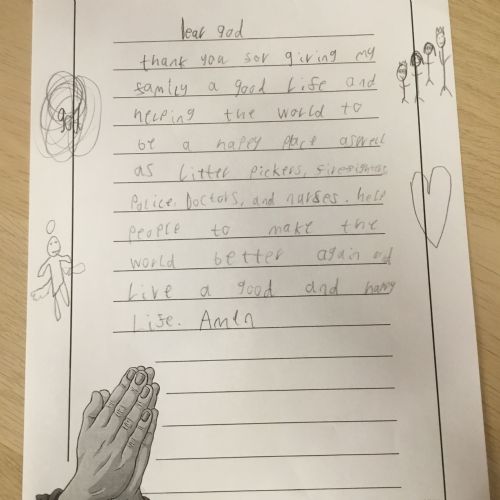 Dear god
thank you for giving my
family a good life and
helping the world to
be a happy place aswell
as litter pickers, firefighters
Police, Doctors, and nurses. help
people to make the
world better again and
live a good and happy
life. Amen
god